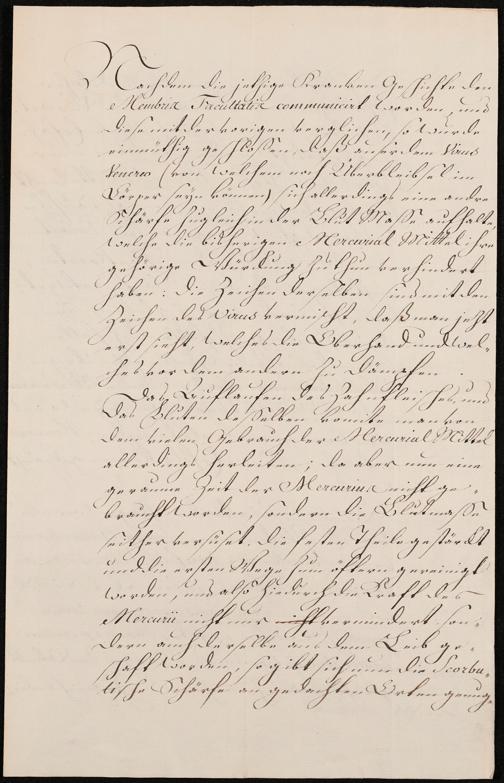 Nachdem die jetzige Kranken Geschichte den
Membris Facultatis communicirt worden, und
diese mit der vorigen verglichen, so wurde
einmüthig geschlossen, daß ausser dem Virus
Venereo (von welchem noch Überbleibsel im
Körper seyn können) sich allerdings eine andre
Schärfe zugleich in der Blut Mass aufhalte,
welche die bisherigen Mercurial Mittel ihre
gehörige Würckung zu thun verhindert
haben: die Zeichen derselben sind mit den
Zeichen des Virus vermischt, daß man jetzt
erst sieht, welches die Oberhand und wel-
ches vor dem andern zu dämpfen.
Das Auflaufen des Zahnfleisches und
das Bluten desselben könnte man von
dem vielen Gebrauch der Mercurial Mittel
allerdings herleiten; da aber nun eine
geraume Zeit der Mercurius nicht ge-
braucht worden, sondern die Blutmasse
seither versüset, die festen Theile gestärckt
und die ersten Wege zum öftern gereinigt
worden, und also hiedurch die Kraft des
Mercurii nicht nur vermindert son-
dern auch derselbe aus dem Leib ge-
schaft worden, so gibt sich nun die Scorbu-
tische Schärfe an gedachten Orten genug-